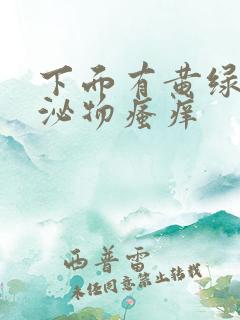 下而有黄绿
泌物瘙痒
西普雷
未经同意禁止转载